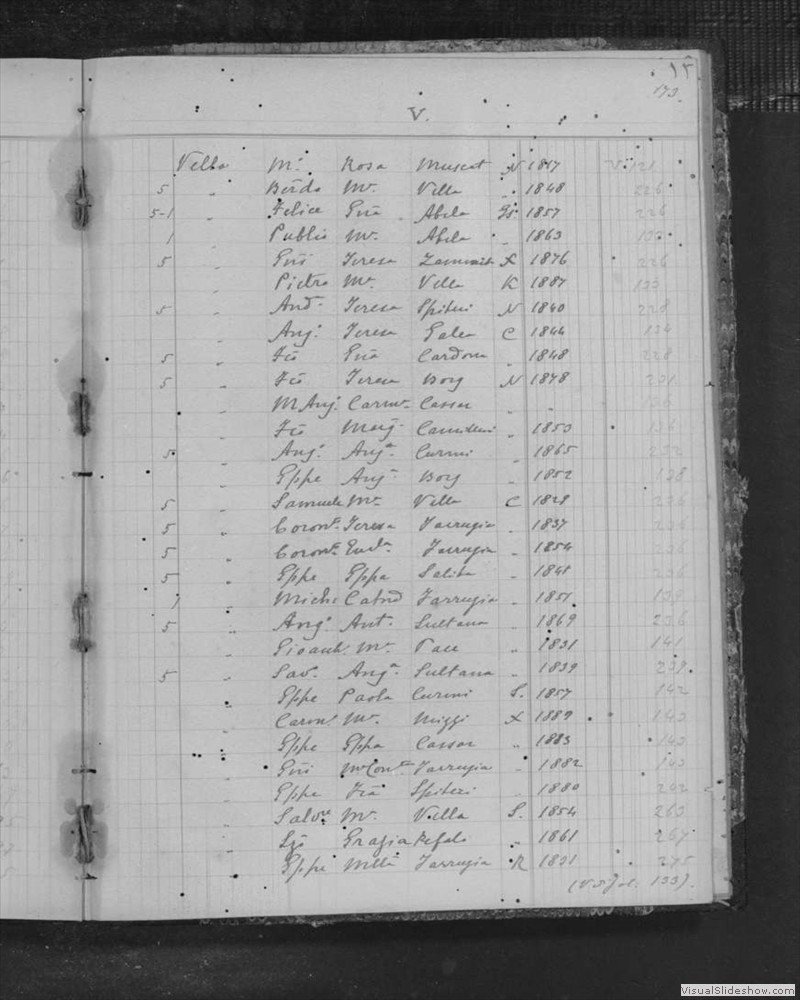 173.
V.
Vella Mº Rosa Muscat N 1817 V. 121
5 " Berdo Mª Vella " 1848 226
5-1 " Felice Gnã Abela 1857 226
1 " Publio Mª Abela " 1863 132
5 " Gni Teresa Zammit X 1876 226
" Pietro Mª Vella K 1887 133
5 " And. Teresa Spiteri N 1840 228
" Angº Teresa Galea C 1844 134
5 " Fcõ Gnã Cardona " 1848 228
5 " Fcõ Teresa Borg N 1878 231
" M Angº Carmª Cassar " " 136
" Fcõ Marg. Camilleri " 1853 136
5 " Angº Angª Curmi " 1865 232
" Gppe Angª Borg " 1852 138
5 " Samuele Mª Vella C 1828 236
5 " Coronº Teresa Farrugia " 1837 236
5 " Coronº Farrugia " 1854 236
5 " Gppe Gppa Saliba " 1841 236
1 " Michl Catnã Farrugia " 1851 139
5 " Angº Ant. Sultana " 1869 236
" Gioanb. Mª Pace " 1831 141
5 " Sav. Angª Sultana " 1839 239.
" Gppe Paola Curmi S. 1857 142
" Carmº Mª Mizzi X 1889 143
" Gppe Gppa Cassar " 1883 143
" Gni MªConª Farrugia " 1882 143
" Gppe Fcã Spiteri " 1880 242
" Salvº Mª Vella S. 1854 263
" Grazia Refalo " 1861 267
" Gppe Mttã Farrugia R 1831 275
(V. S. fol. 133).
VisualSlideshow.com